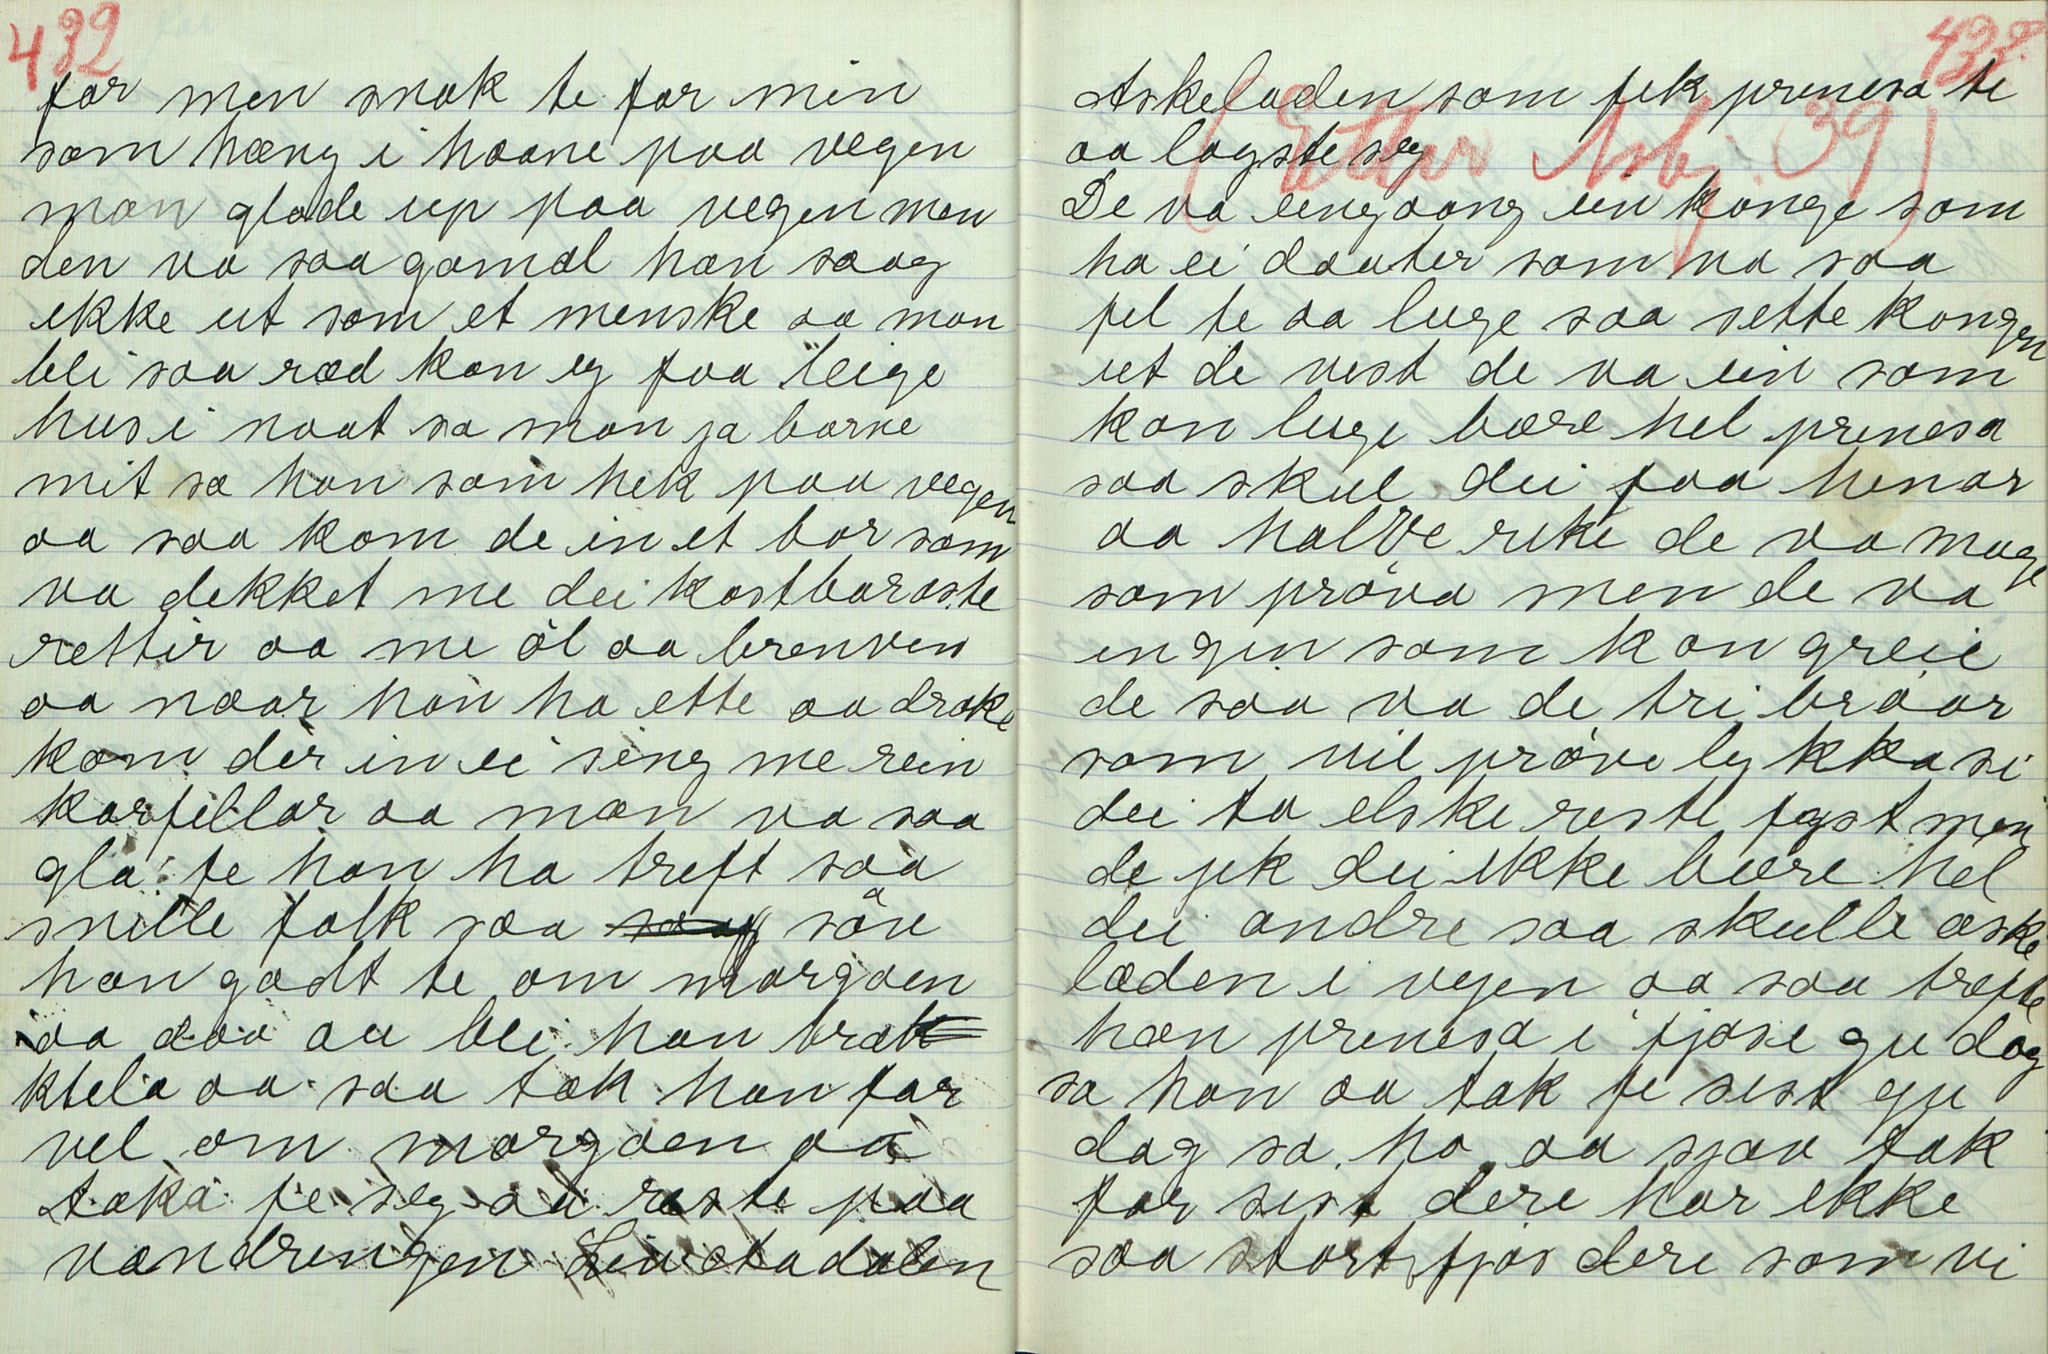 432
far men snak te far min
som hæng i haane paa vegen
man glade up paa vegen men
den va saa gamal han saag
ikke ut som et menske aa man
bli saa ræd kan eg faa leige
hus i naat sa man ja barne
mit sa han som hek paa vegen
aa saa kom de in et bor som
va dekket me dei kostbaraste
rettir aa me öl aa brenven
aa naar han ha ette aa drake
kam der in ei seng me rein
karfellar aa man va saa
gla fe han ha treft saa
snille falk saa söv
han godt te om morgaen
aa daa au blei han
ktela aa saa tok han far
vel om morgaen aa
taka fe seg aa reste paa
vandrengen
433
Askeladen som fek prensesa te
aa lagste seg
(Etter Asbj. 39)
De va eingaang ein konge som
ha ei daater som va saa
fel te aa luge saa sette kongen
ut de vist de va ein som
kan luge bære hel prensesa
saa skul dei faa henar
aa halve rike de va mage
som pröva men de va
engin som kan greie
de saa va de tri bröar
som vil pröve lykka si
dei to elske reste fyst men
de jek dei ikke bære hel
dei andre saa skulle aske
laden i vejen aa saa trefte
han prensesa i fjøse gu dag
sa han aa tak fe sest gu
dag sa ho aa sjøv tak
far sest dere har ikke
saa stort fjøs dere som vi